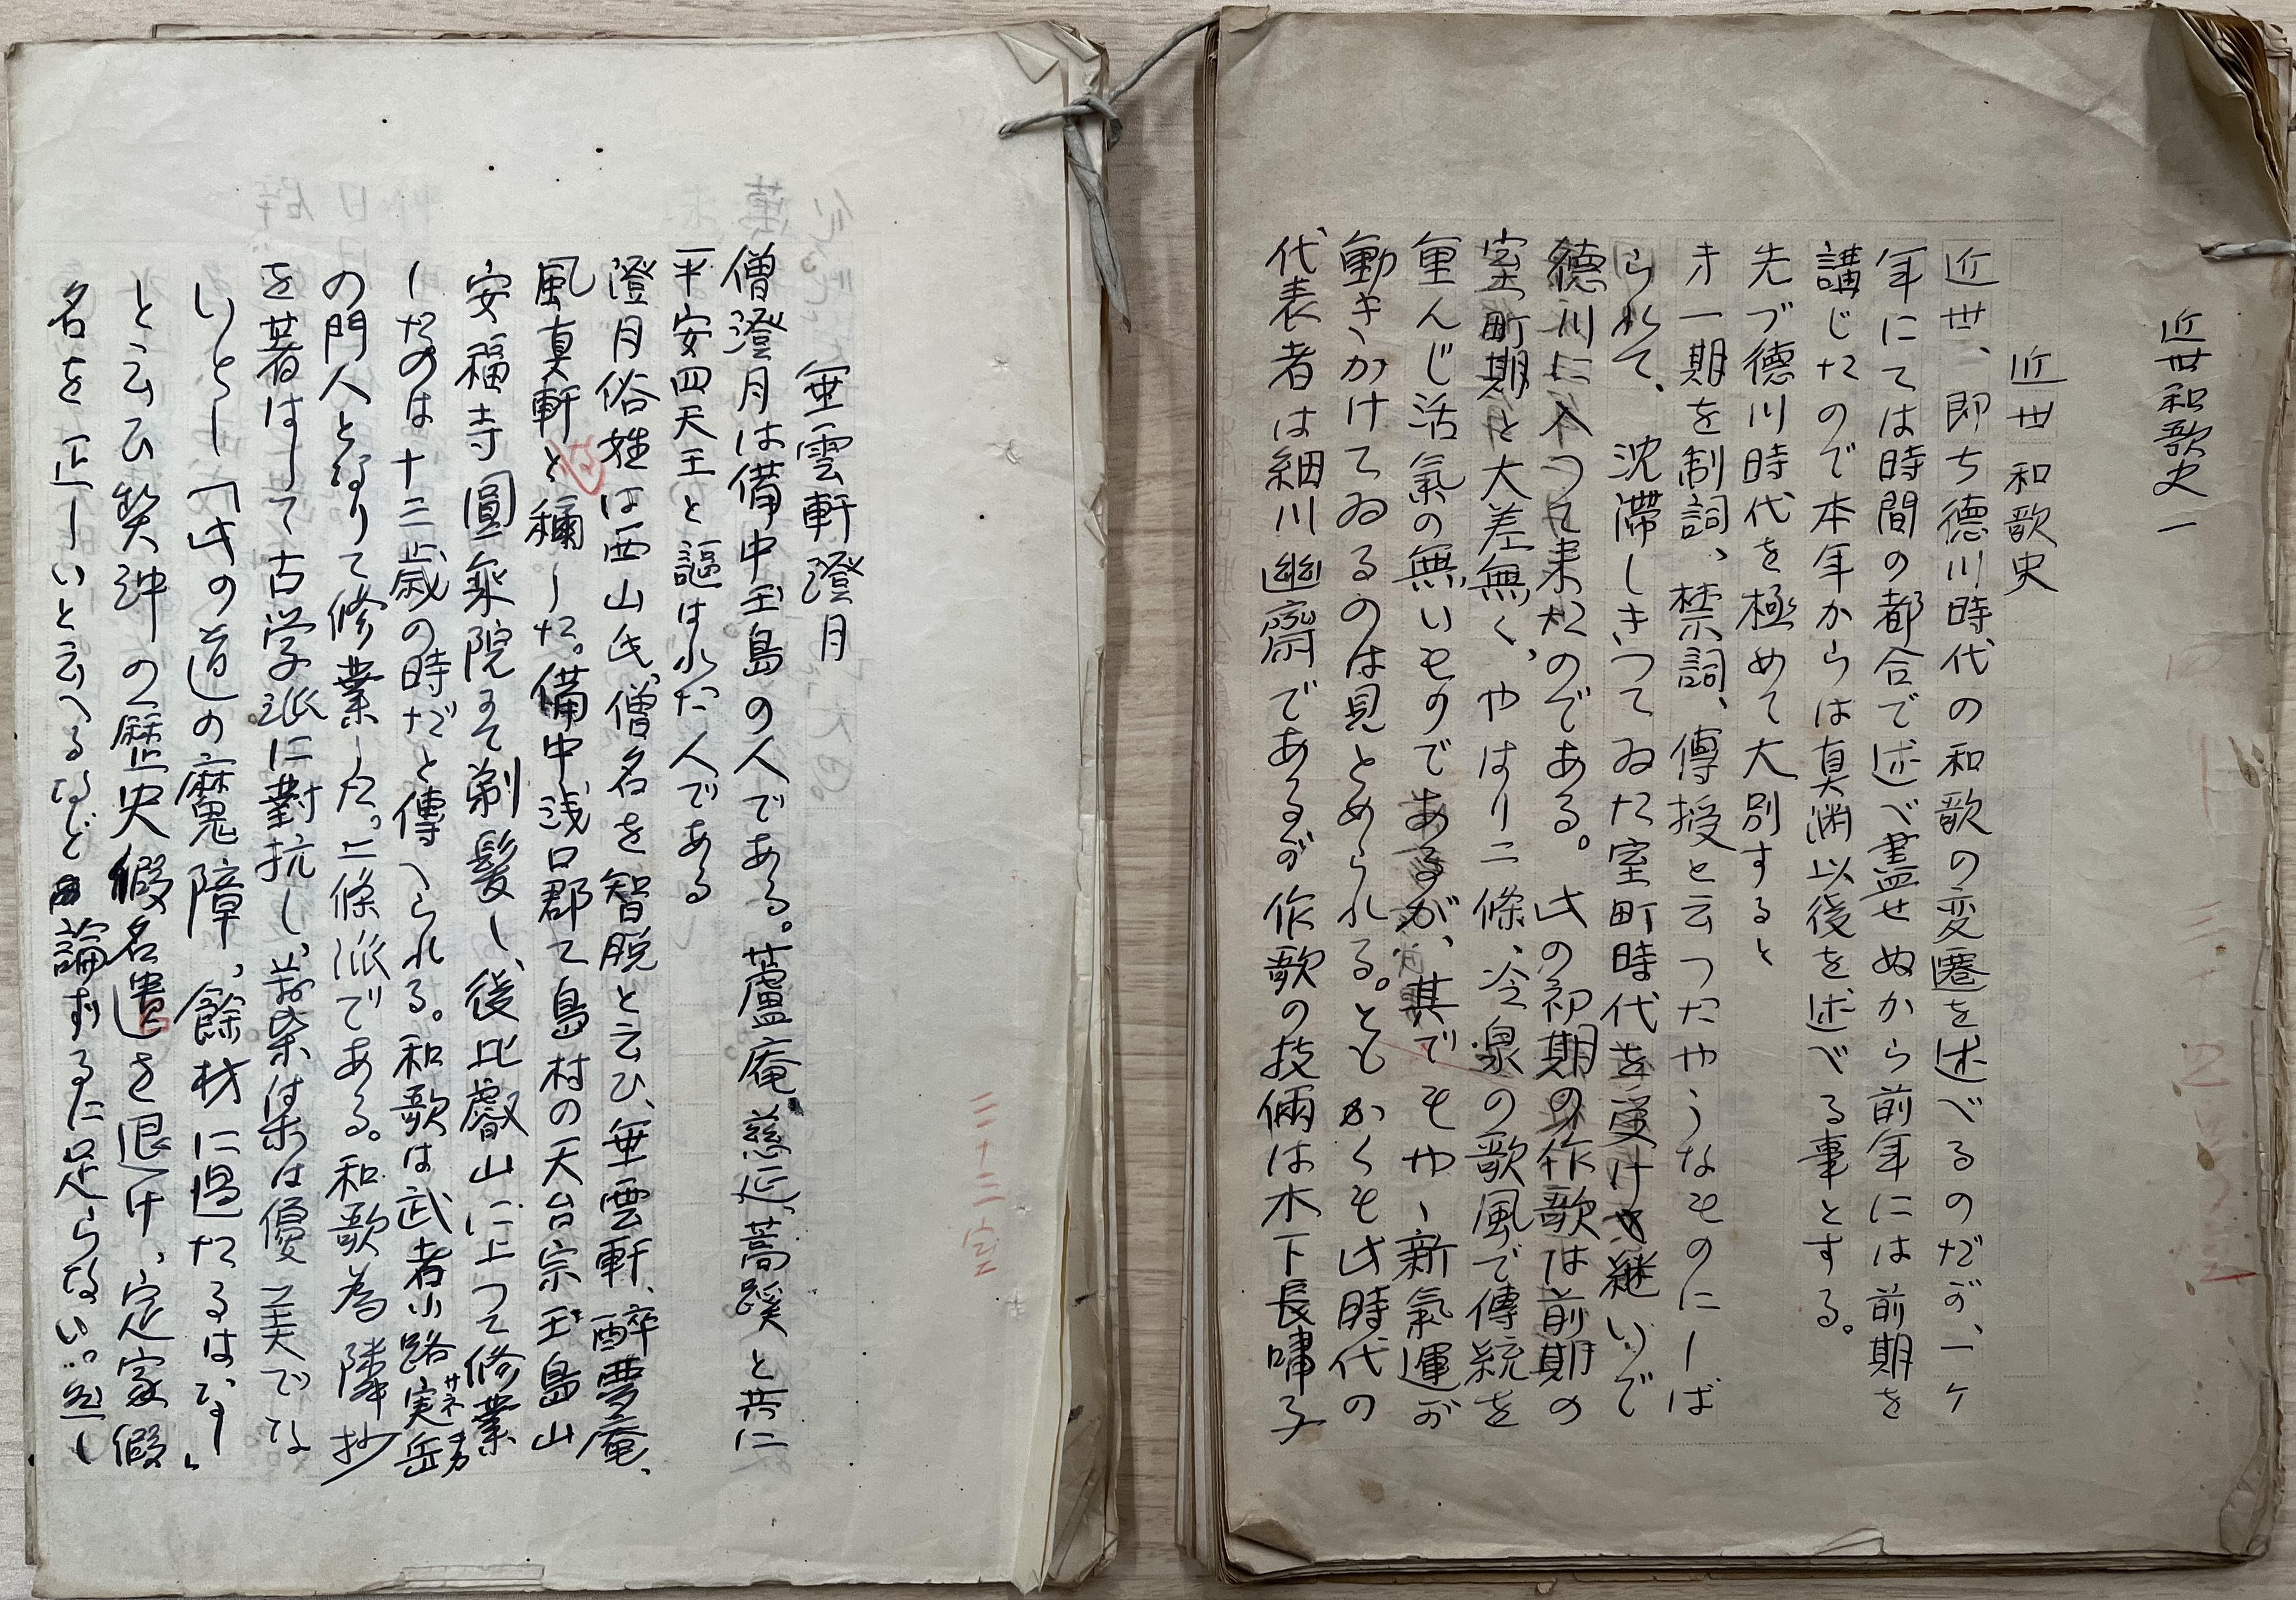 近世和歌史一
近世和歌史
近世、即ち德川時代の和歌の変遷を述べるのだが、一ヶ
年にては時間の都合で述べ盡せぬから前年には前期を
講じたので本年からは真渕以後を述べる事とする。
先づ德川時代を極めて大別すると
才一期を制詞、禁詞、傳授と云つたやうなものにしば
られて、沈滞しきつてゐた室町時代を受け継いで
德川に入つて来たのである。此の初期の作歌は前期の
室町期と大差無く、やはり二條、冷泉の歌風で傳統を
重んじ活氣の無いものであるが、其でもやゝ新氣運が
動きかけてゐるのは見とめられる。ともかくも此時代の
代表者は細川幽齋であるが作歌の技倆は木下長嘯子
三十二字
垂雲軒澄月
僧澄月は備中玉島の人である。蘆庵、慈延、蒿蹊と共に
平安四天王と謳はれた人である
澄月俗姓は西山氏、僧名を智脱と云ひ、垂雲軒、醉夢庵、
風真軒と稱した。備中浅口郡て島村の天台宗玉島山
安福寺圓乘院にて剃髮し、後比叡山に上つて修業
したのは十三歳の時だと傳へられる。和歌は武者小路実岳
サネオカ
の門人となりて修業した。二條派である。和歌為隣抄
を著はして古学派に對抗し、
は優美でな
いとし「此の道の魔障、餘材に過たるはなし」
と云ひ契沖の歴史假名遣を退け、定家假
名を正しいと云へるなど論ずるに足らない。但し